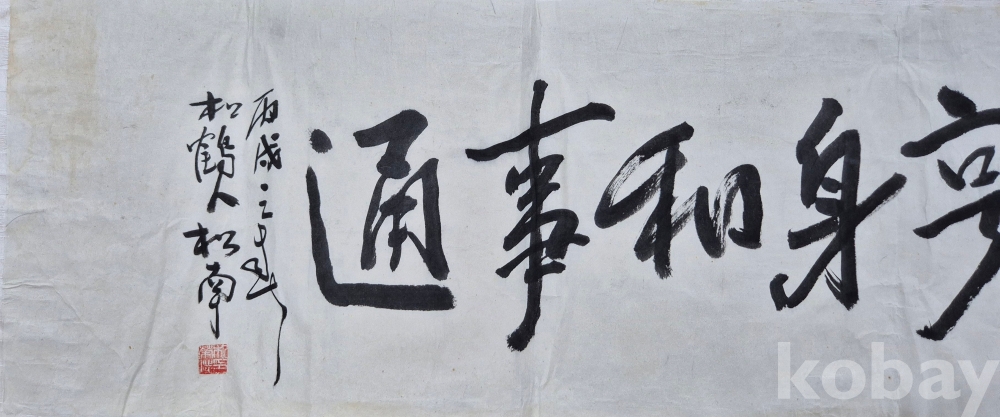 亨身和事通
丙戌之春
松鶴人 松南
kobay